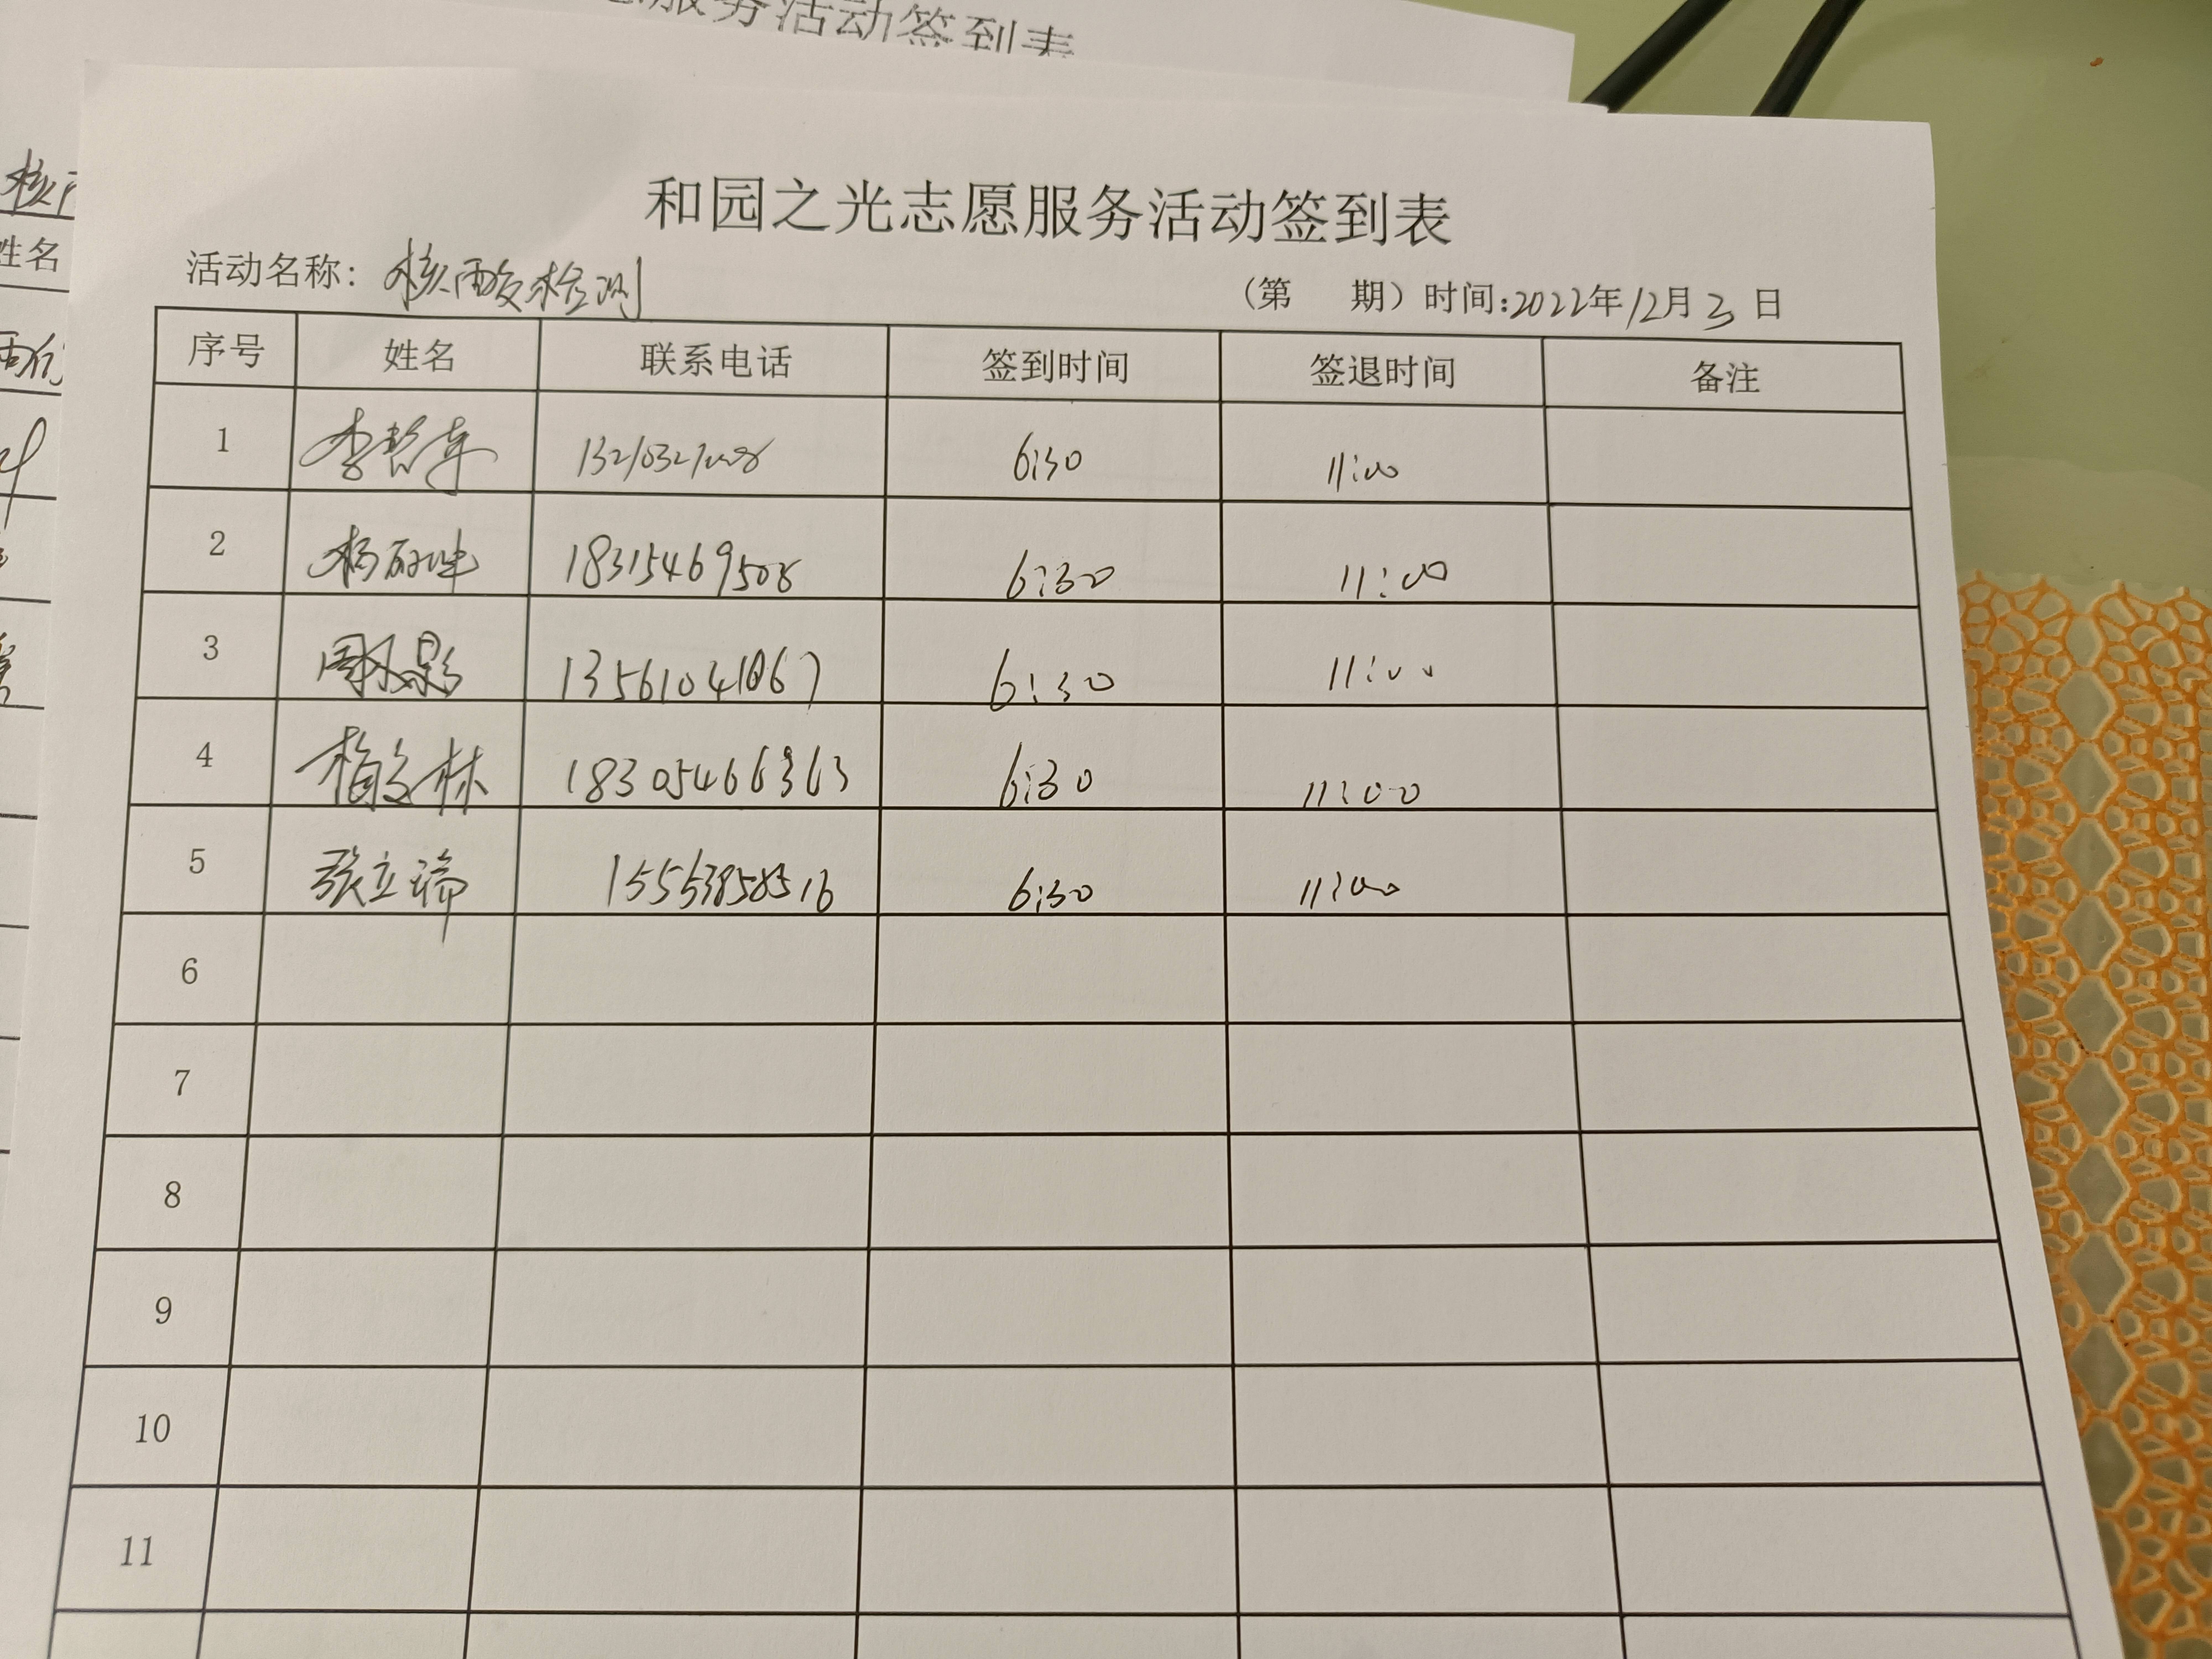 服务活动签到表
核
姓名
和园之光志愿服务活动签到表
活动名称：核酸检测 （第 期）时间：2022年12月3日
序号 姓名 联系电话 签到时间 签退时间 备注
1 李 6:30 11:00
2 杨 18315469508 6:30 11:00
3 周 13561041067 6:30 11:00
4 林 18305466363 6:30 11:00
5 张立瑞 15553858516 6:30 11:00
6
7
8
9
10
11